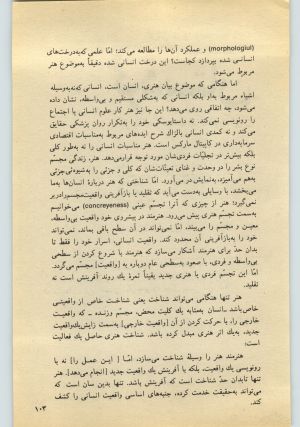 (morphologiul) و عملکرد آن‌ها را مطالعه می‌کند؛ امّا علمی که به درخت‌های
انسانی شده بپردازد کجاست؟ این درخت انسانی شده دقیقاً به موضوع هنر
مربوط می‌شود.
امّا هنگامی که موضوع بیان هنری، انسان است، انسانی که نه به‌وسیله
اشیاء مربوط به‌او بلکه انسانی که به‌شکلی مستقیم و بی‌واسطه، نشان داده
می‌شود، چه اتفاقی روی می‌دهد؟ این جا نیز هنر کار علوم انسانی یا اجتماع
را رونویسی نمی‌کند. نه داستایوسکی خود را به‌تکرار روان پزشکی حقایق
می‌کند و نه کمدی انسانی بالزاک شرح ایده‌های مربوط به‌مناسبات اقتصادی
سرمایه‌داری در کاپیتال مارکس است. هنر مناسبات انسانی را نه به‌طور کلی
بلکه بیش‌تر در تجلیّات فردی‌شان مورد توجه قرار می‌دهد. هنر، زندگی مجسّم
نوع بشر را در وحدت و غنای تعیّنات‌شان که کلی و جزئی به‌شیوه‌ئی جزئی
به‌هم می‌آمیزد، به‌نمایش در می‌آورد. امّا شناختی که هنر درباره انسان‌ها به‌ما
می‌بخشد، با وسایلی به‌دست می‌آید که تقلید یا بازآفرینی واقعیت مجسم را در بر
نمی‌گیرد؛ هنر از چیزی که آنرا تجسّم عینی (concreyeness) می‌خوانیم
به‌سمت تجسّم هنری پیش می‌رود. هنرمند در پیشروی خود واقعیت بی‌واسطه،
معین و مجسّم را می‌بیند، امّا نمی‌تواند در آن سطح باقی بماند، نمی‌تواند
خود را به‌بازآفرینی آن محدود کند. واقعیت انسانی، اسرار خود را فقط تا
بدان حدّ برای هنرمند آشکار می‌سازد که هنرمند با شروع کردن از سطحی
بی‌واسطه و فردی، با صعود به‌سطحی عام دوباره به [واقعیت] مجسّم می‌گردد.
امّا این تجسّم فردی یا هنری جدید یقیناً ثمرهٔ یک روند آفرینش باشد نه
تقلید.
هنر تنها هنگامی می‌تواند شناخت یعنی شناخت خاص از واقعیتی
خاص باشد ـ انسان به‌مثابه یک کلیت محض، مجسّم و زنده ـ که واقعیت
خارجی را، با حرکت کردن از آن [واقعیت خارجی] به‌سمت زایش یک واقعیت
جدید، به‌یک اثر هنری مبدل کرده باشد. شناخت هنری حاصل یک فعالیت
است؛
هنرمند هنر را وسیلهٔ شناخت می‌سازد، امّا [این عمـل را] نه با
رونویسی یک واقعیت، بلکه با آفرینش یک واقعیت جدید [انجام می‌دهد]. هنر
تنها تابدان حدّ شناخت است که آفرینش باشد. تنها بدین سان است که
می‌تواند به‌حقیقت خدمت کرده، جنبه‌های اساسی واقعیت انسانی را کشف
کند.
۱۰۳